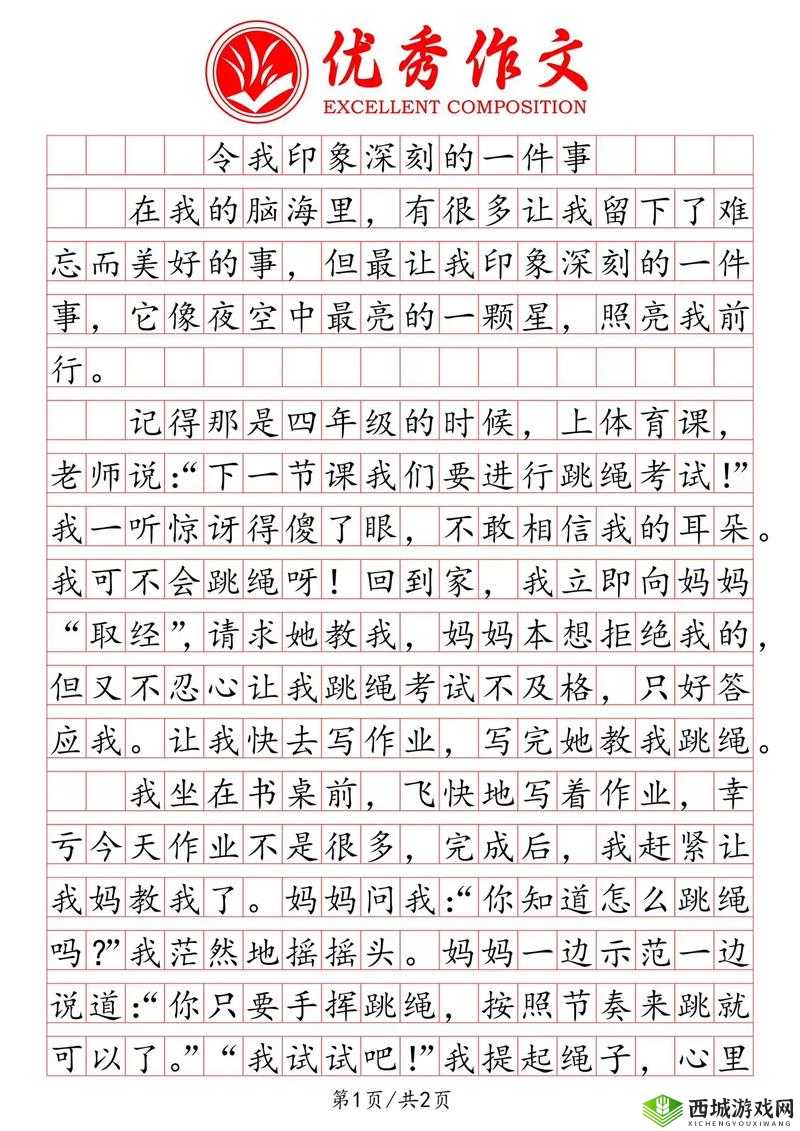 优秀作文
EXCELLENT COMPOSITION
令我印象深刻的一件事
在我的脑海里，有很多让我留下了难
忘而美好的事，但最让我印象深刻的一件
事，它像夜空中最亮的一颗星，照亮我前
行。
记得那是四年级的时候，上体育课，
老师说：“下一节课我们要进行跳绳考试！”
我一听惊讶得傻了眼，不敢相信我的耳朵。
我可不会跳绳呀！回到家，我立即向妈妈
“取经”，请求她教我，妈妈本想拒绝我的，
但又不忍心让我跳绳考试不及格，只好答
应我。让我快去写作业，写完她教我跳绳。
我坐在书桌前，飞快地写着作业，幸
亏今天作业不是很多，完成后，我赶紧让
我妈教我了。妈妈问我：“你知道怎么跳绳
吗？”我茫然地摇摇头。妈妈一边示范一边
说道：“你只要手挥跳绳，按照节奏来跳就
可以了。”“我试试吧！”我提起绳子，心里
第1页/共2页
西城游戏网
XICHENGYOUXIWANG